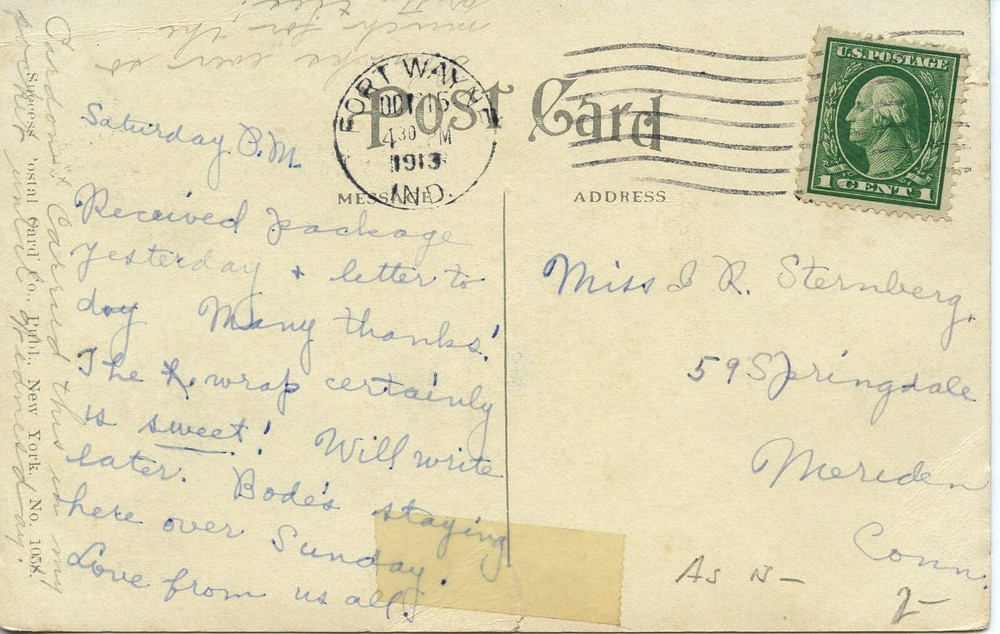 Post Card
FORT WAYNE
OCT 15
4 30 PM
1913
IND.
U.S. POSTAGE
1 CENT 1
MESSAGE
ADDRESS
Saturday P.M.
Received package
yesterday + letter to
day Many thanks!
The K. wrap certainly
is sweet! Will write
later. Bode's staying
here over Sunday.
Love from us all.
much for the
Carried this in my
pocket until Wednesday!
Miss I R. Sternberg,
59 Springdale
Meriden
Conn.
As N-
2-
Success Postal Card Co., Publ., New York, No. 1058.